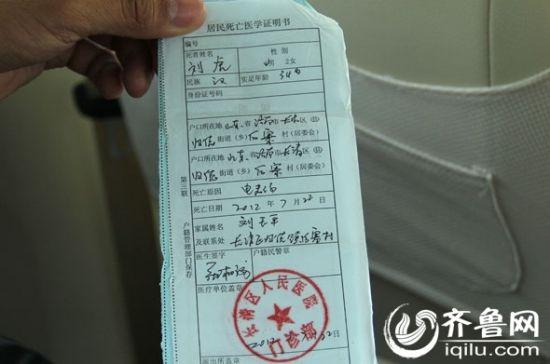 居民死亡医学证明书
编号
死者姓名 刘虎 性别 2女
民族 汉 实足年龄 34岁
身份证号码
户口所在地 山东 省 济南市 长清 区
归德 街道(乡) 村(居委会)
户口所在地 山东 省 济南市 长清 区
归德 街道(乡) 村(居委会)
死亡原因 电击伤
死亡日期 2012 年 7 月 22 日
家属姓名 刘
及联系处 长清区归德镇 村
医生签字 户籍民警章
医疗单位盖章
派出所盖章
第三联
户籍管理部门保存
长清区人民医院
门诊部
齐鲁网
iqilu.com